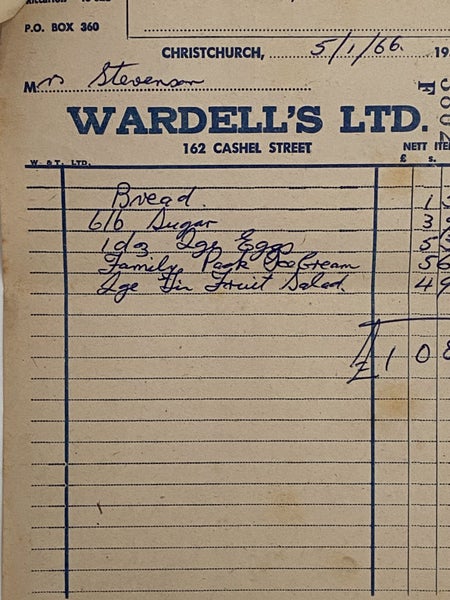 P.O. BOX 360
CHRISTCHURCH, 5/1/66. 19
Mr Stevenson
WARDELL'S LTD.
162 CASHEL STREET
F 3802
W. & T. LTD.
NETT ITE
£ s.
Bread. 1
6 lb Sugar 3
1 dz Lge Eggs 5
Family Pack Ice Cream 5 6
Lge Tin Fruit Salad. 4 9
£ 1 0 8